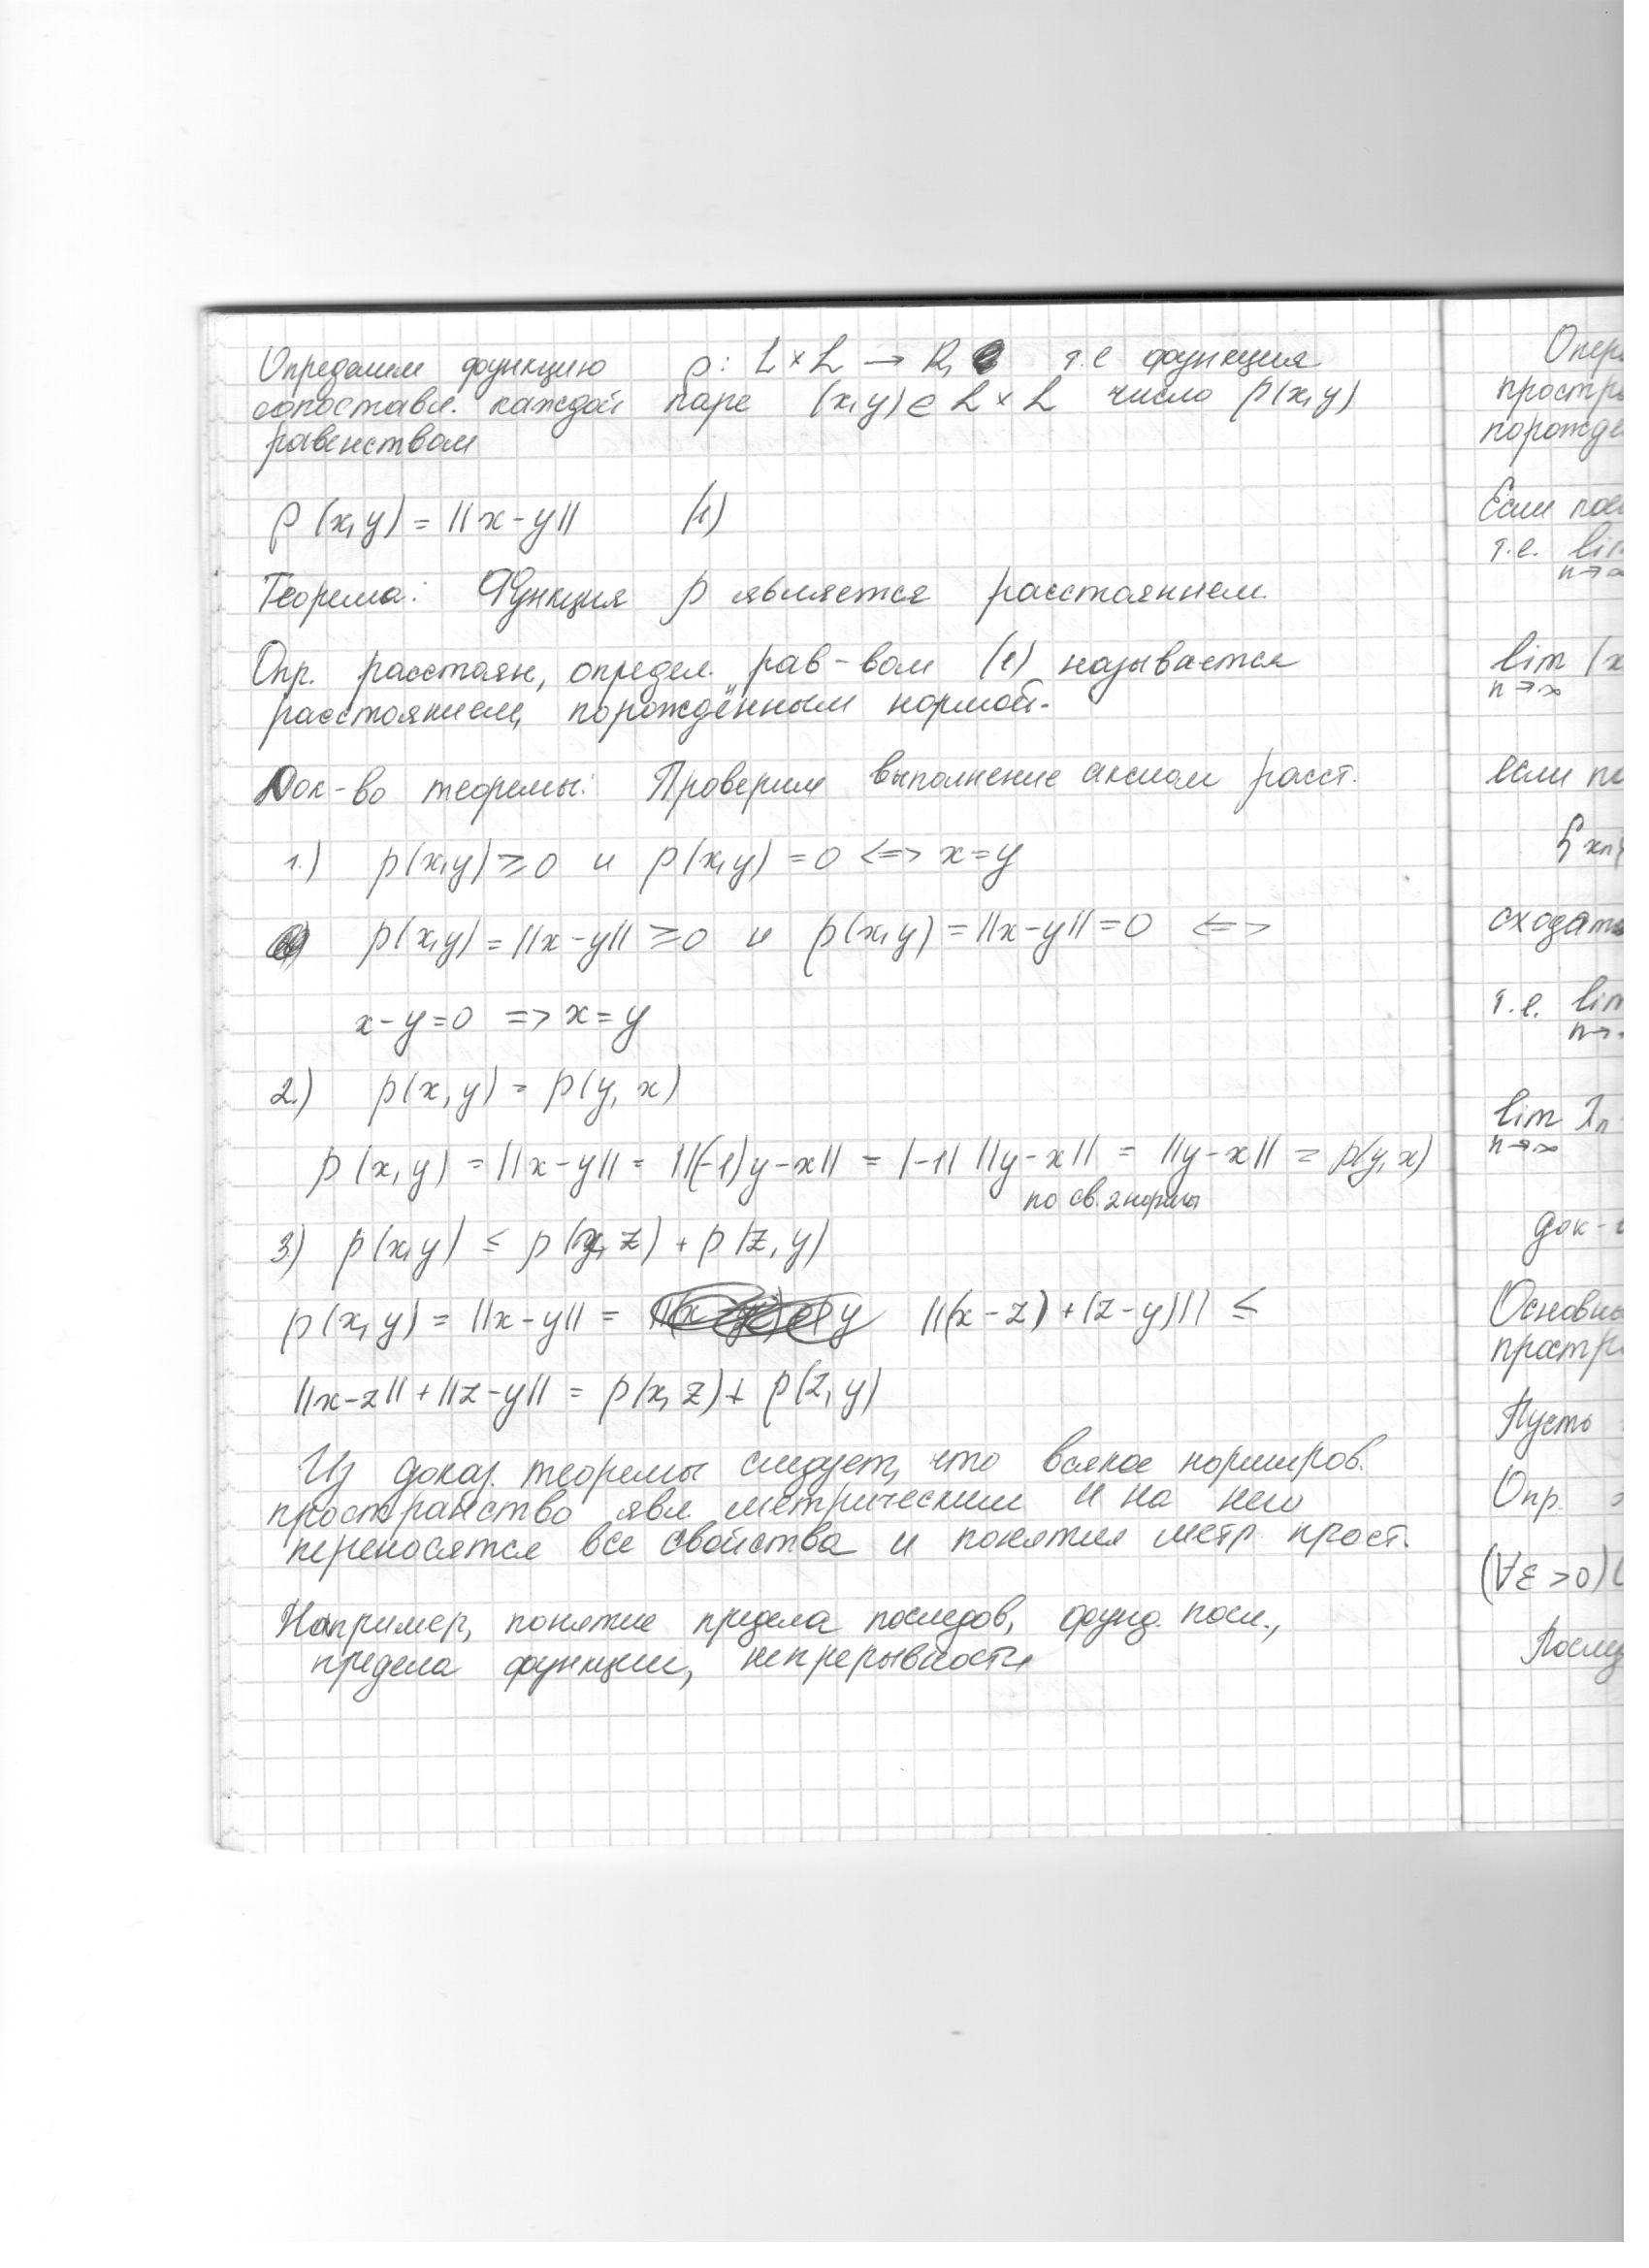 Определим функцию ρ: L × L → R, т.е функция
сопоставл. каждой паре (x,y) ∈ L × L число ρ(x,y)
равенством
ρ(x,y) = ||x-y|| (1)
Теорема: Функция ρ является расстоянием.
Опр. расстоян, определ. рав-вом (1) называется
расстоянием, порождённым нормой.
Док-во теоремы: Проверим выполнение аксиом расст.
1.) ρ(x,y) ≥ 0 и ρ(x,y) = 0 <=> x=y
ρ(x,y) = ||x-y|| ≥ 0 и ρ(x,y) = ||x-y|| = 0 <=>
x-y=0 => x=y
2.) ρ(x,y) = ρ(y,x)
ρ(x,y) = ||x-y|| = ||(-1)y-x|| = |-1| ||y-x|| = ||y-x|| = ρ(y,x)
по св. 2 нормы
3) ρ(x,y) ≤ ρ(x,z) + ρ(z,y)
ρ(x,y) = ||x-y|| = ||(x-z)+(z-y)|| ≤
||x-z||+||z-y|| = ρ(x,z)+ρ(z,y)
Из доказ. теоремы следует, что всякое нормиров.
пространство явл метрическим и на него
переносятся все свойства и понятия метр. прост.
Например, понятие предела последов, фунд. посл.,
предела функции, непрерывности
Опер
простр
порожде
Если пос
т.е. lim
n→∞
lim (x
n→∞
если по
{xn}
сходит
т.е. lim
n→
lim λn
n→∞
док-
Основны
простр
Пусть
Опр.
(∀ε>0)(
Послед